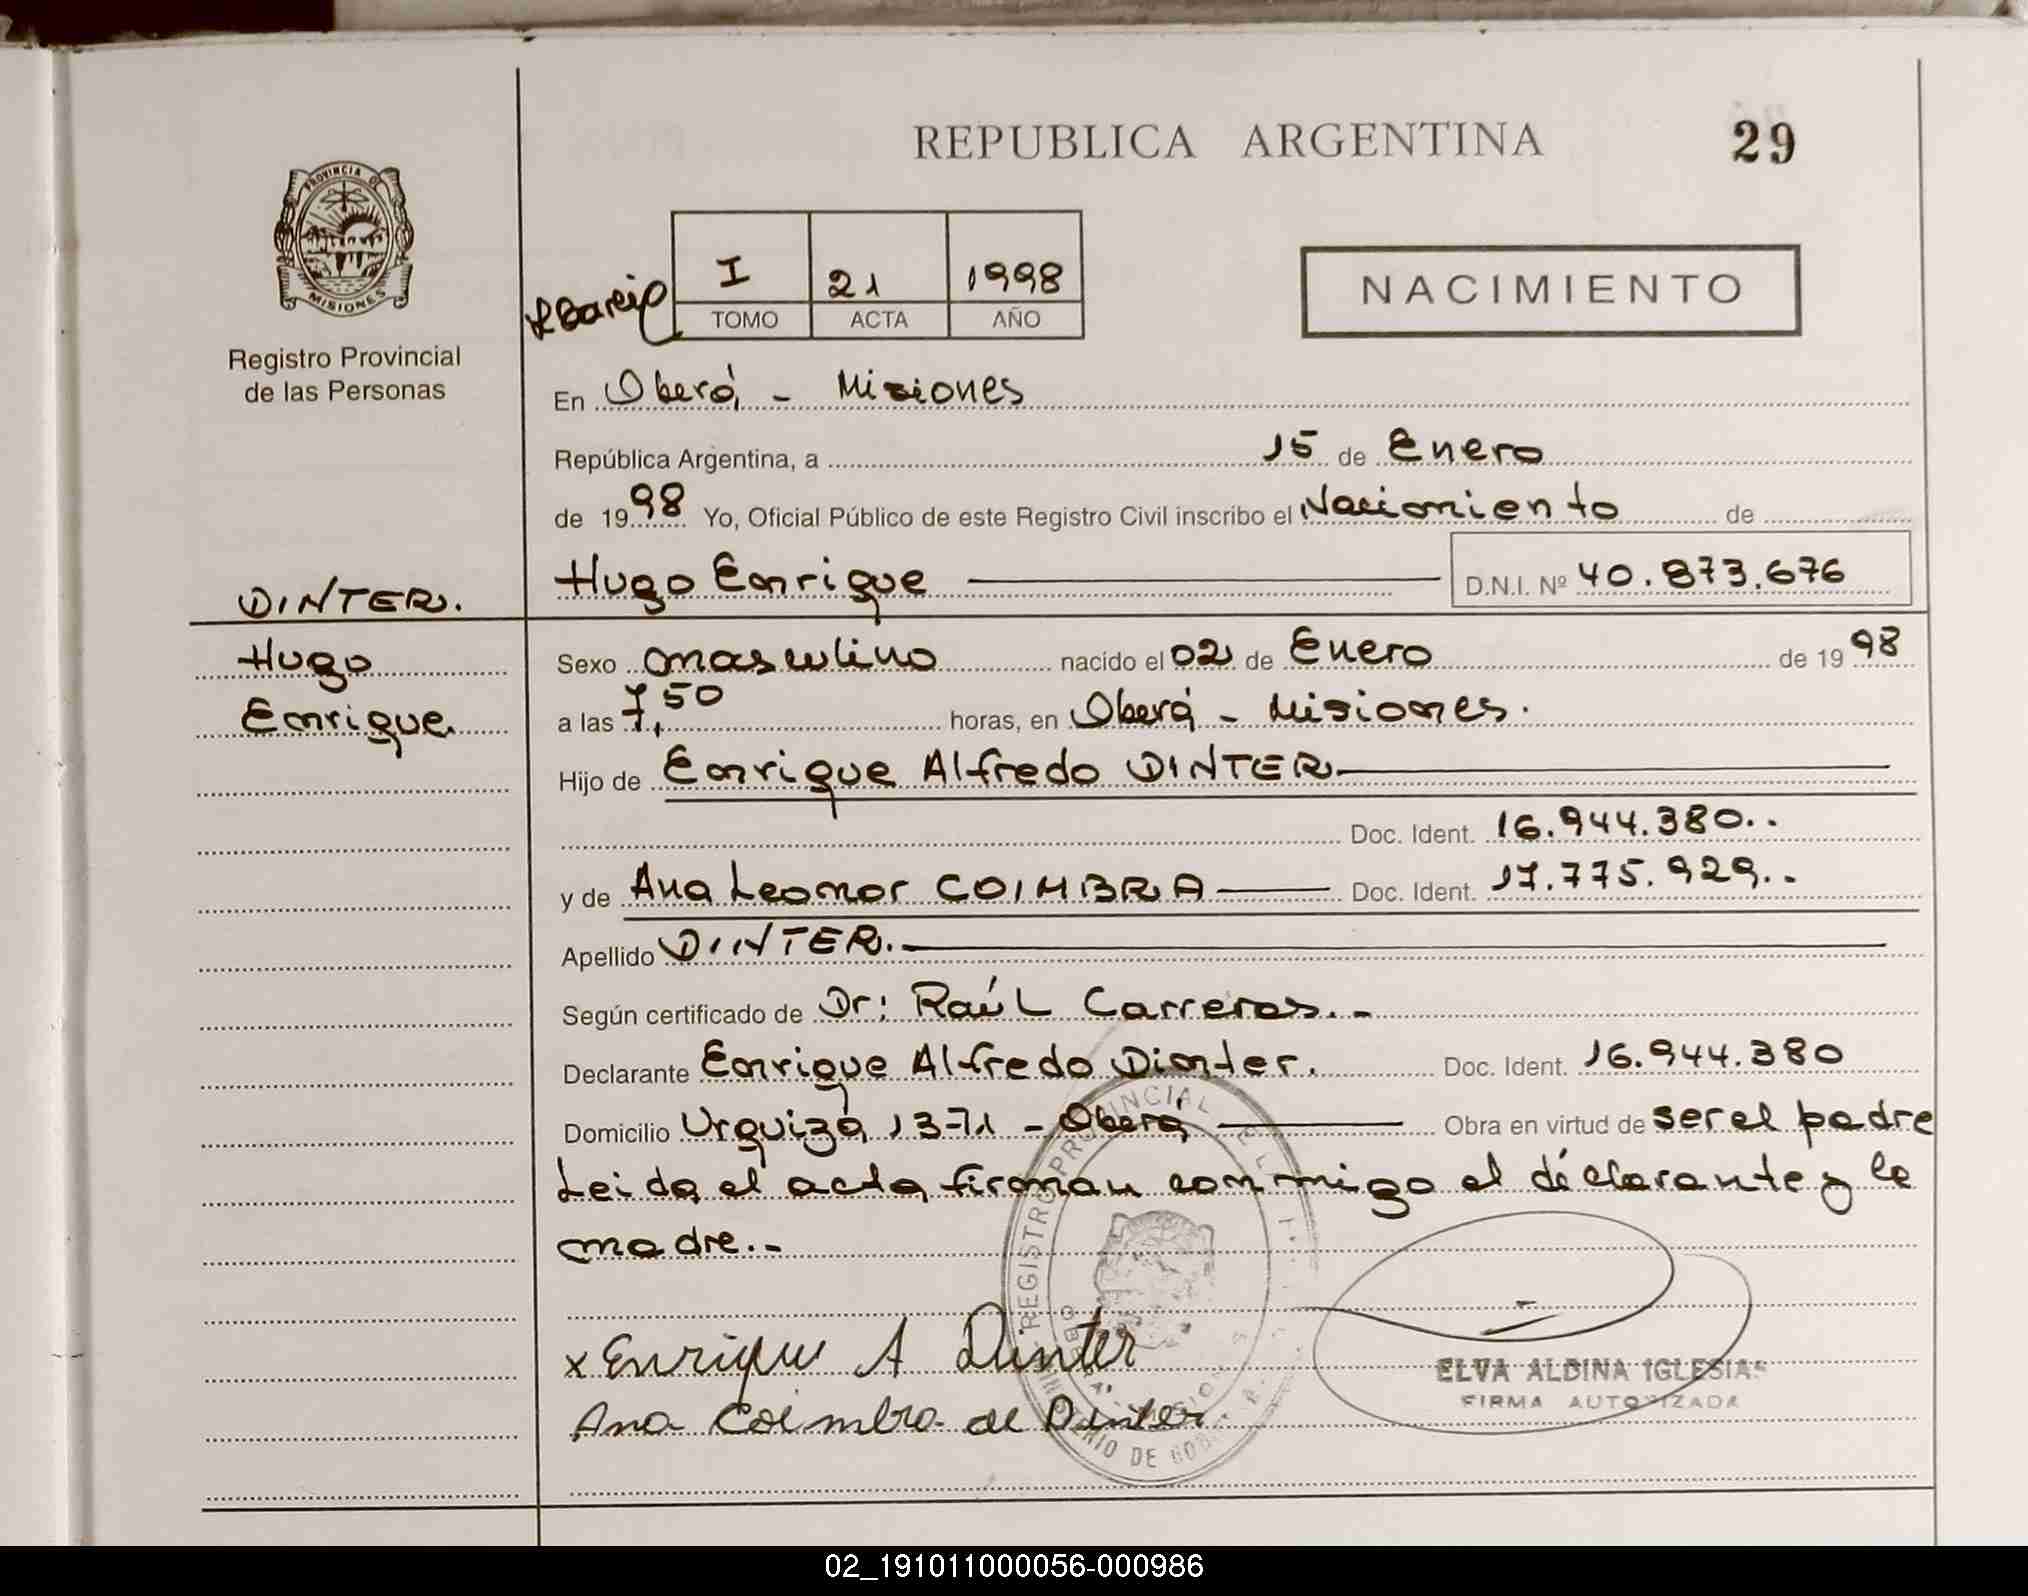 REPUBLICA ARGENTINA
29
PROVINCIA DE
MISIONES
Registro Provincial
de las Personas
I 21 1998
TOMO ACTA AÑO
NACIMIENTO
En Oberá - Misiones
República Argentina, a 15 de Enero
de 1998 Yo, Oficial Público de este Registro Civil inscribo el Nacimiento de
Hugo Enrique D.N.I. Nº 40.873.676
DINTER.
Hugo
Enrique.
Sexo masculino nacido el 02 de Enero de 1998
a las 7,50 horas, en Oberá - Misiones.
Hijo de Enrique Alfredo DINTER
Doc. Ident. 16.944.380..
y de Ana Leonor COIMBRA Doc. Ident. 17.775.929..
Apellido DINTER.
Según certificado de Dr: Raúl Carreras.-
Declarante Enrique Alfredo Dinter. Doc. Ident. 16.944.380
Domicilio Urquiza 1371 - Oberá Obra en virtud de ser el padre
Leida el acta firman conmigo el declarante y la
madre.-
x Enrique A Dinter
Ana Coimbra de Dinter
REGISTRO PROVINCIAL
ELVA ALBINA IGLESIAS
FIRMA AUTORIZADA
02_191011000056-000986